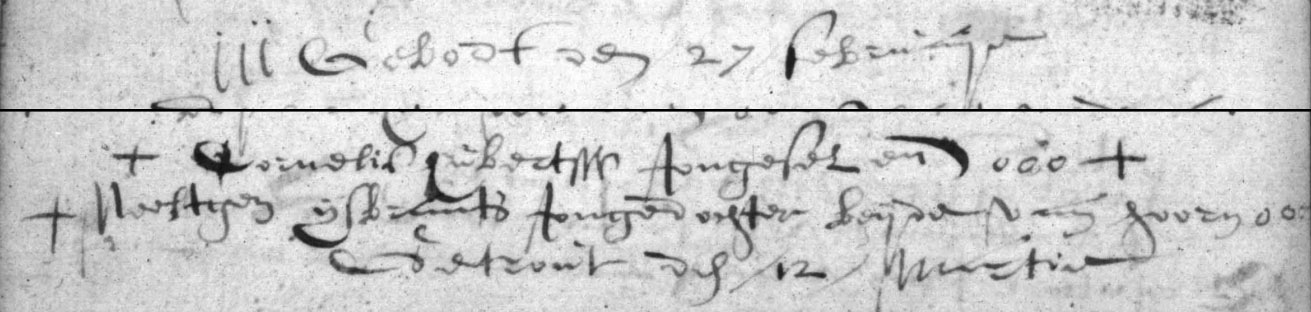 iii Gebodt den 27 februarij
+ Cornelis jubertsss Jongesel en ooo +
+ Neeltgen ysbrants Jongedochter beyde van hoorn oo
Getrout den 12 Martii